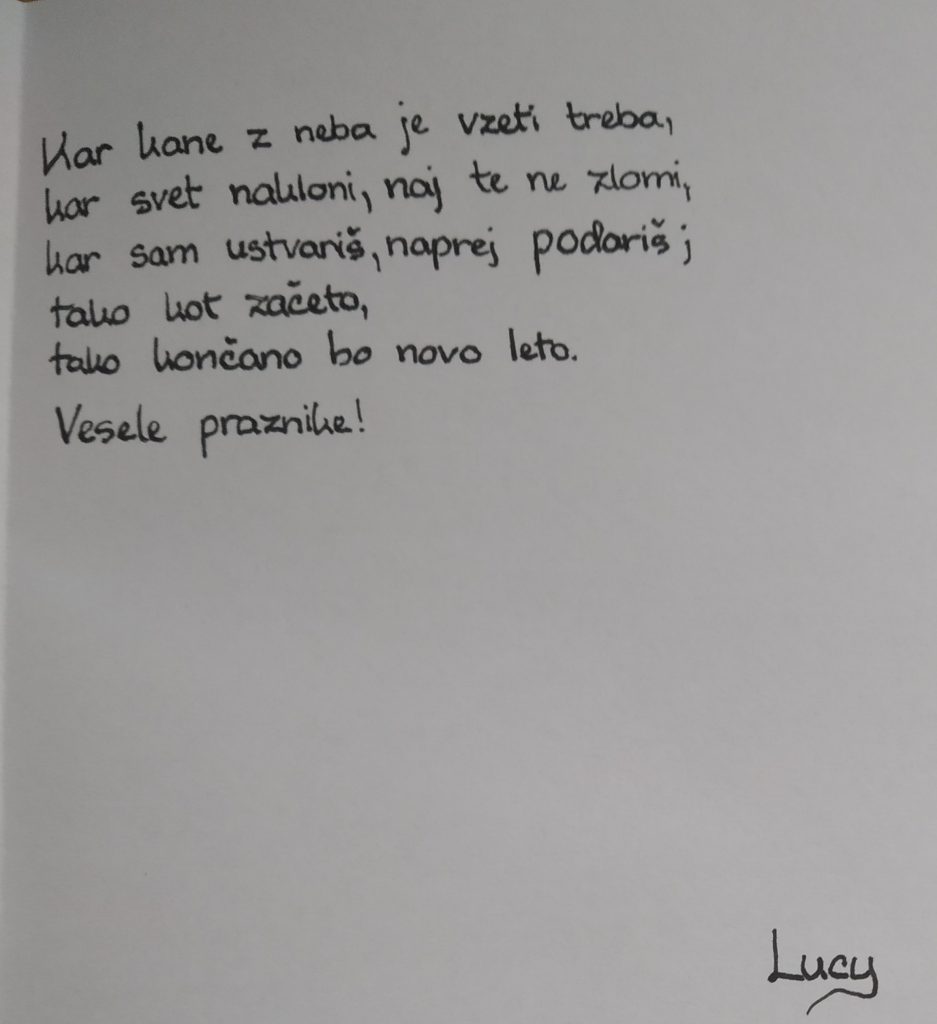 Kar kane z neba je vzeti treba,
kar svet nakloni, naj te ne zlomi,
kar sam ustvariš, naprej podariš;
tako kot začeto,
tako končano bo novo leto.
Vesele praznike!
Lucy